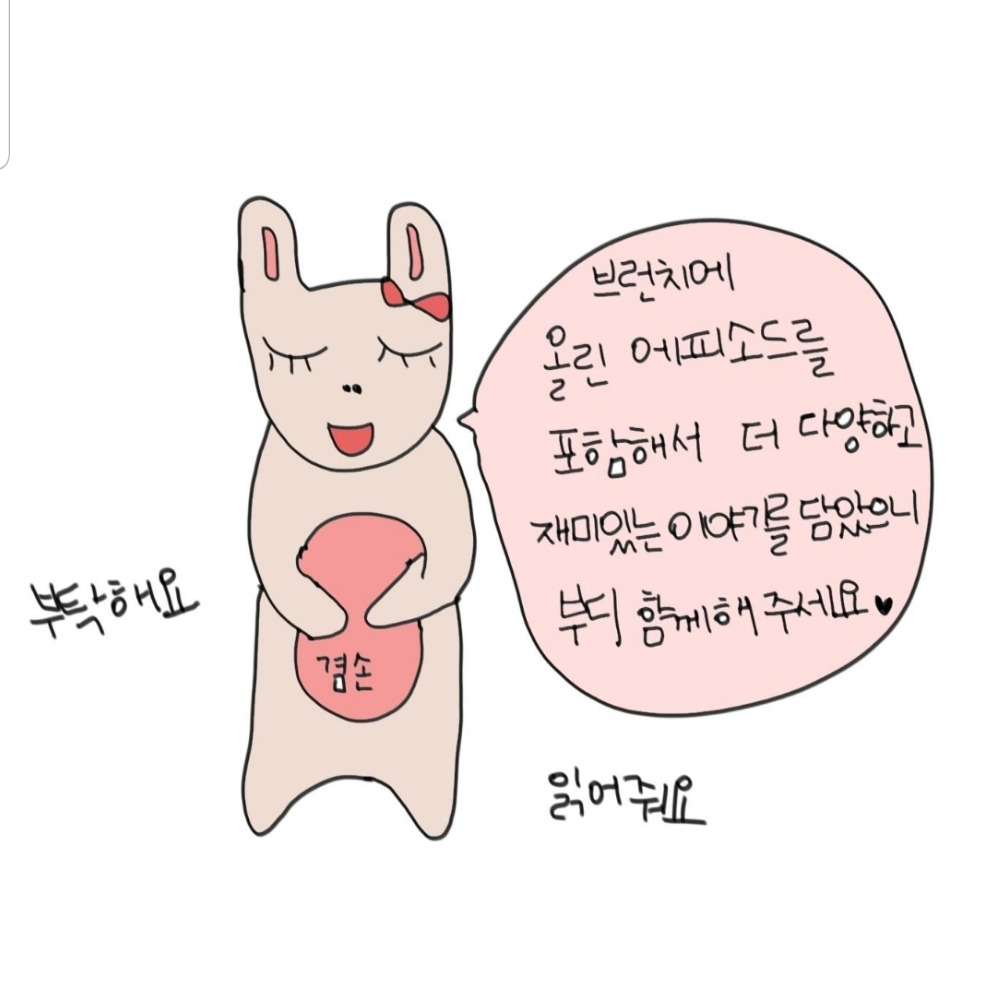 브런치에
올린 에피소드를
포함해서 더 다양하고
재미있는 이야기를 담았으니
부디 함께해 주세요♥
부탁해요
겸손
읽어줘요